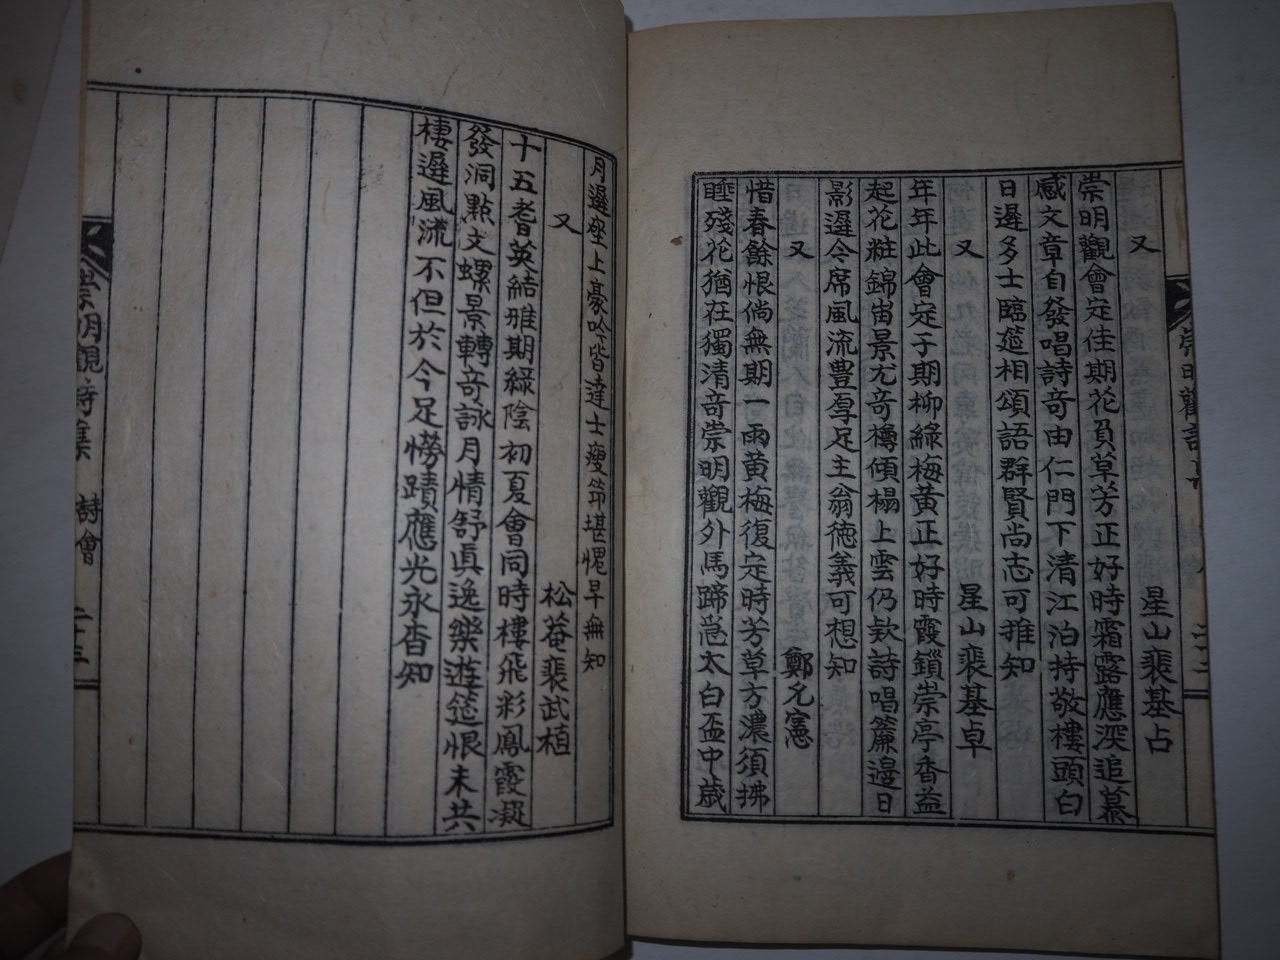 又 星山裴基占
崇明觀會定佳期花負草芳正好時霜露應深追慕
感文章自發唱詩奇由仁門下清江泊持敬樓頭白
日遲多士臨筵相頌語群賢尚志可推知
又 星山裴基卓
年年此會定于期柳綠梅黃正好時霞鎖崇亭香益
起花粧錦宙景尤奇樽傾榻上雲仍欵詩唱簾邊日
影遲令席風流豊厚足主翁德義可想知
又 鄭允憲
惜春餘恨倘無期一雨黃梅復定時芳草方濃須拂
睡殘花猶在獨清奇崇明觀外馬蹄急太白盃中歲
月遲座上豪吟皆達士瘦筇堪愧早無知
又 松菴裴武植
十五耆英結雅期綠陰初夏會同時樓飛彩鳳霞凝
發洞點文螺景轉奇詠月情舒眞逸樂遊筵恨未共
棲遲風流不但於今足勝蹟應光永杳知
崇明觀詩集 詩會 二十三